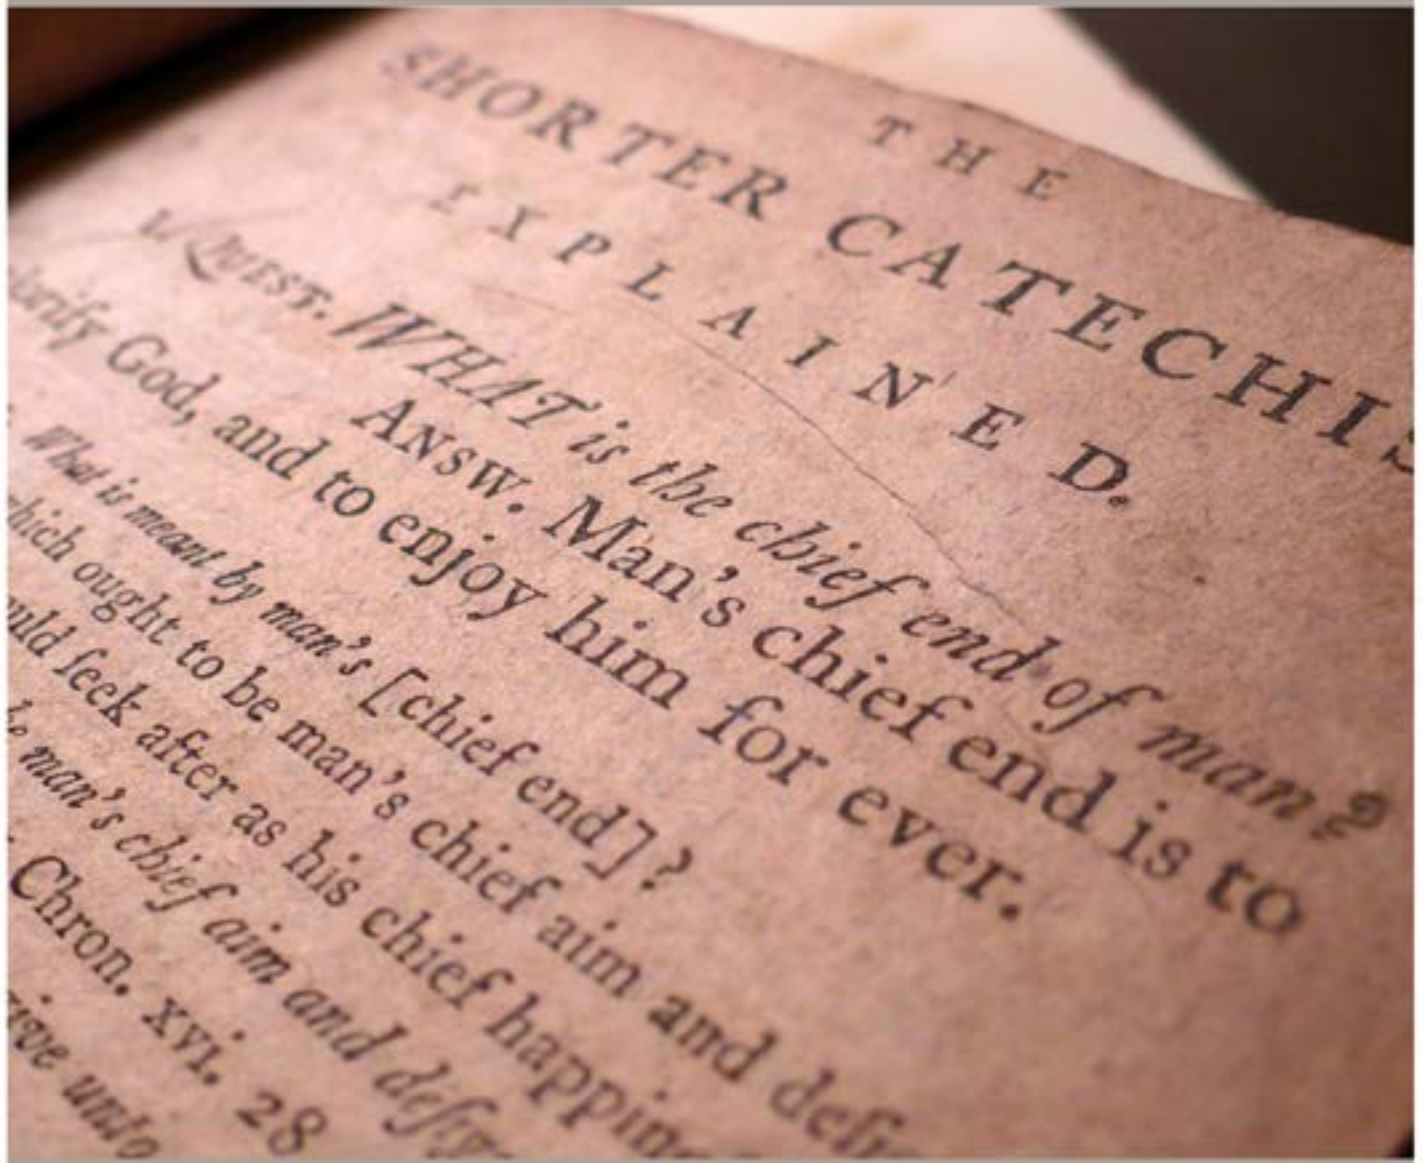 THE
SHORTER CATECHIS
EXPLAINED.
1. QUEST. WHAT is the chief end of man?
ANSW. Man's chief end is to
glorify God, and to enjoy him for ever.
What is meant by man's [chief end]?
which ought to be man's chief aim and deſi
ould ſeek after as his chief happin
man's chief aim and deſig-
Chron. xvi. 28
give unto